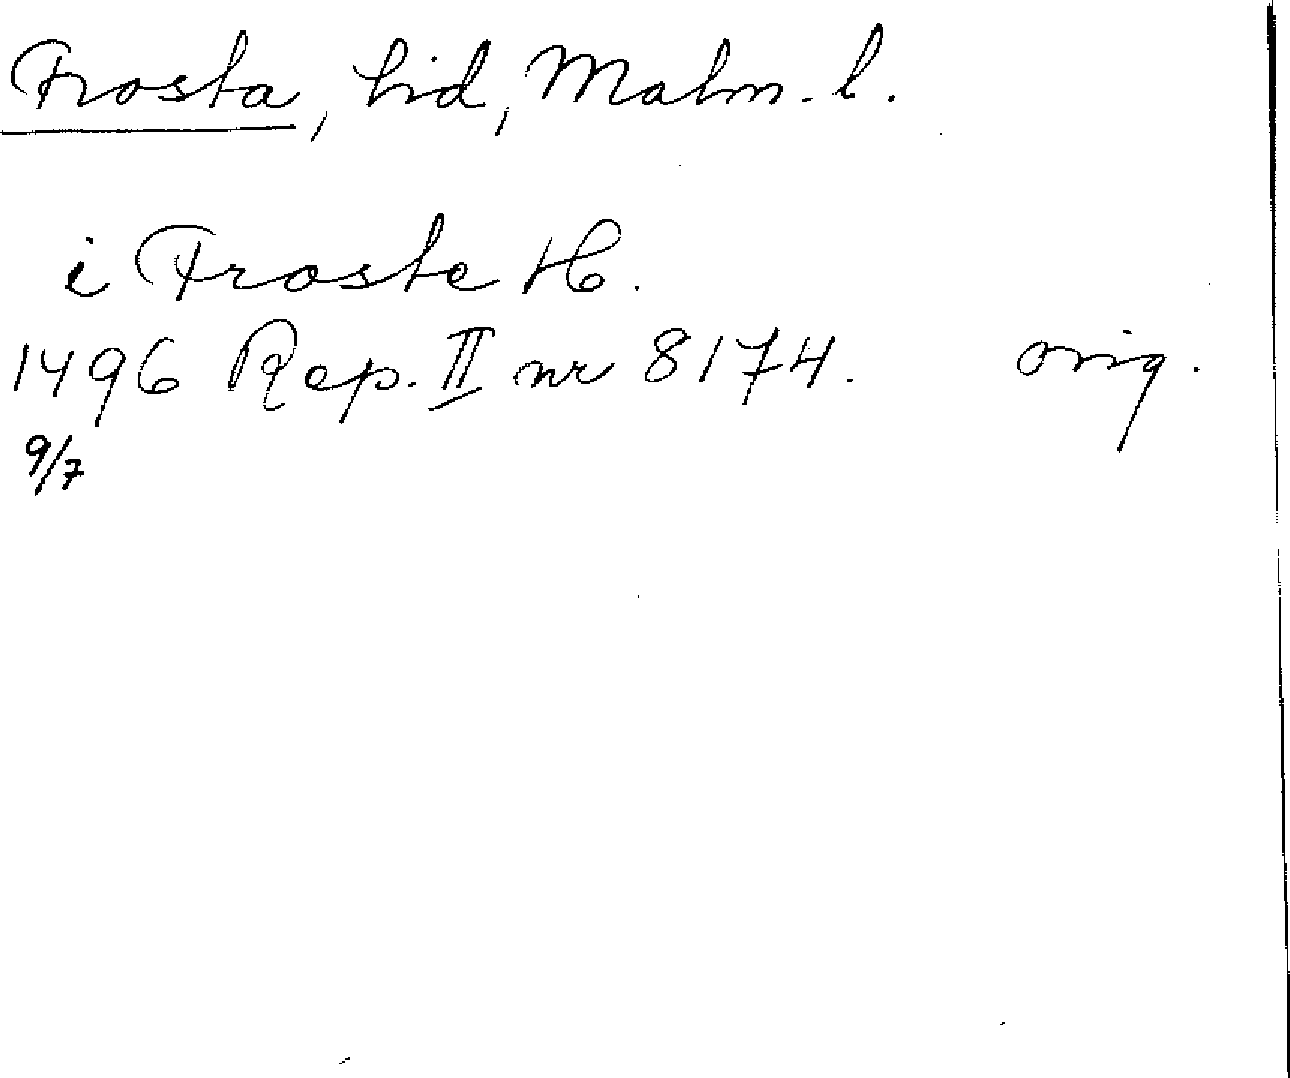 Frosta, hd, Malm. l.
i Froste H.
1496 Rep. II nr 8174. orig.
9/7